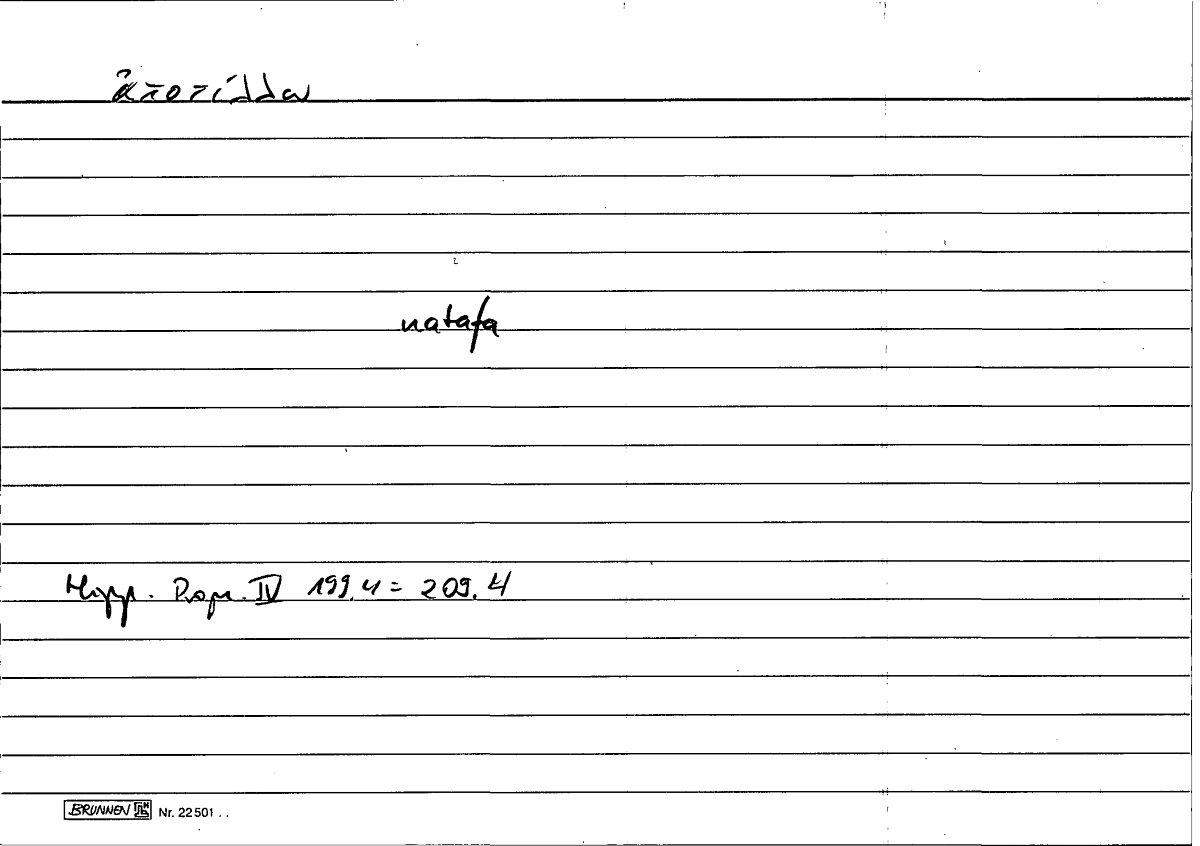 ἀποτίλλω
natafa
Hipp. Progn. IV 199.4 = 209.4
BRUNNEN Nr. 22501 ..